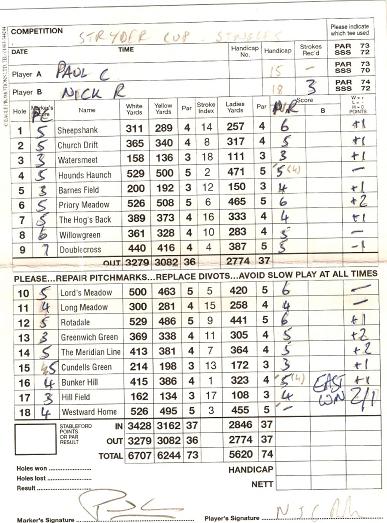 COMPETITION STRYDER CUP SINGLES
Please indicate which tee used
DATE TIME Handicap No. Handicap Strokes Rec'd PAR 73 SSS 72
Player A PAUL C 15 - PAR 73 SSS 70
Player B NICK R 18 3 PAR 74 SSS 72
Hole Marker's Score Name White Yards Yellow Yards Par Stroke Index Ladies Yards Par Score W = + L = - H = 0 POINTS
PC N/R
1 5 Sheepshank 311 289 4 14 257 4 6 +1
2 5 Church Drift 365 340 4 8 317 4 5 +1
3 3 Watersmeet 158 136 3 18 111 3 3 +1
4 5 Hounds Haunch 529 500 5 2 471 5 5(4) -
5 3 Barnes Field 200 192 3 12 150 3 4 +1
6 5 Priory Meadow 526 508 5 6 465 5 6 +2
7 5 The Hog's Back 389 373 4 16 333 4 4 +1
8 6 Willowgreen 361 328 4 10 283 4 5 -
9 7 Doublecross 440 416 4 4 387 5 5 -1
OUT 3279 3082 36 2774 37
PLEASE...REPAIR PITCHMARKS...REPLACE DIVOTS...AVOID SLOW PLAY AT ALL TIMES
10 5 Lord's Meadow 500 463 5 5 420 5 6 -
11 4 Long Meadow 300 281 4 15 258 4 4 -
12 5 Rotadale 529 486 5 9 441 5 6 +1
13 4 Greenwich Green 369 338 4 11 305 4 5 +2
14 5 The Meridian Line 413 381 4 7 364 4 5 +2
15 5 Cundells Green 214 198 3 13 172 3 3 +1
16 4 Bunker Hill 415 386 4 1 323 4 5(4) EAST -
17 3 Hill Field 162 134 3 17 108 3 4 WON 2/1
18 4 Westward Home 526 495 5 3 455 5 -
STABLEFORD POINTS OR PAR RESULT
IN 3428 3162 37 2846 37
OUT 3279 3082 36 2774 37
TOTAL 6707 6244 73 5620 74
Holes won HANDICAP
Holes lost
Result NETT
Marker's Signature Player's Signature